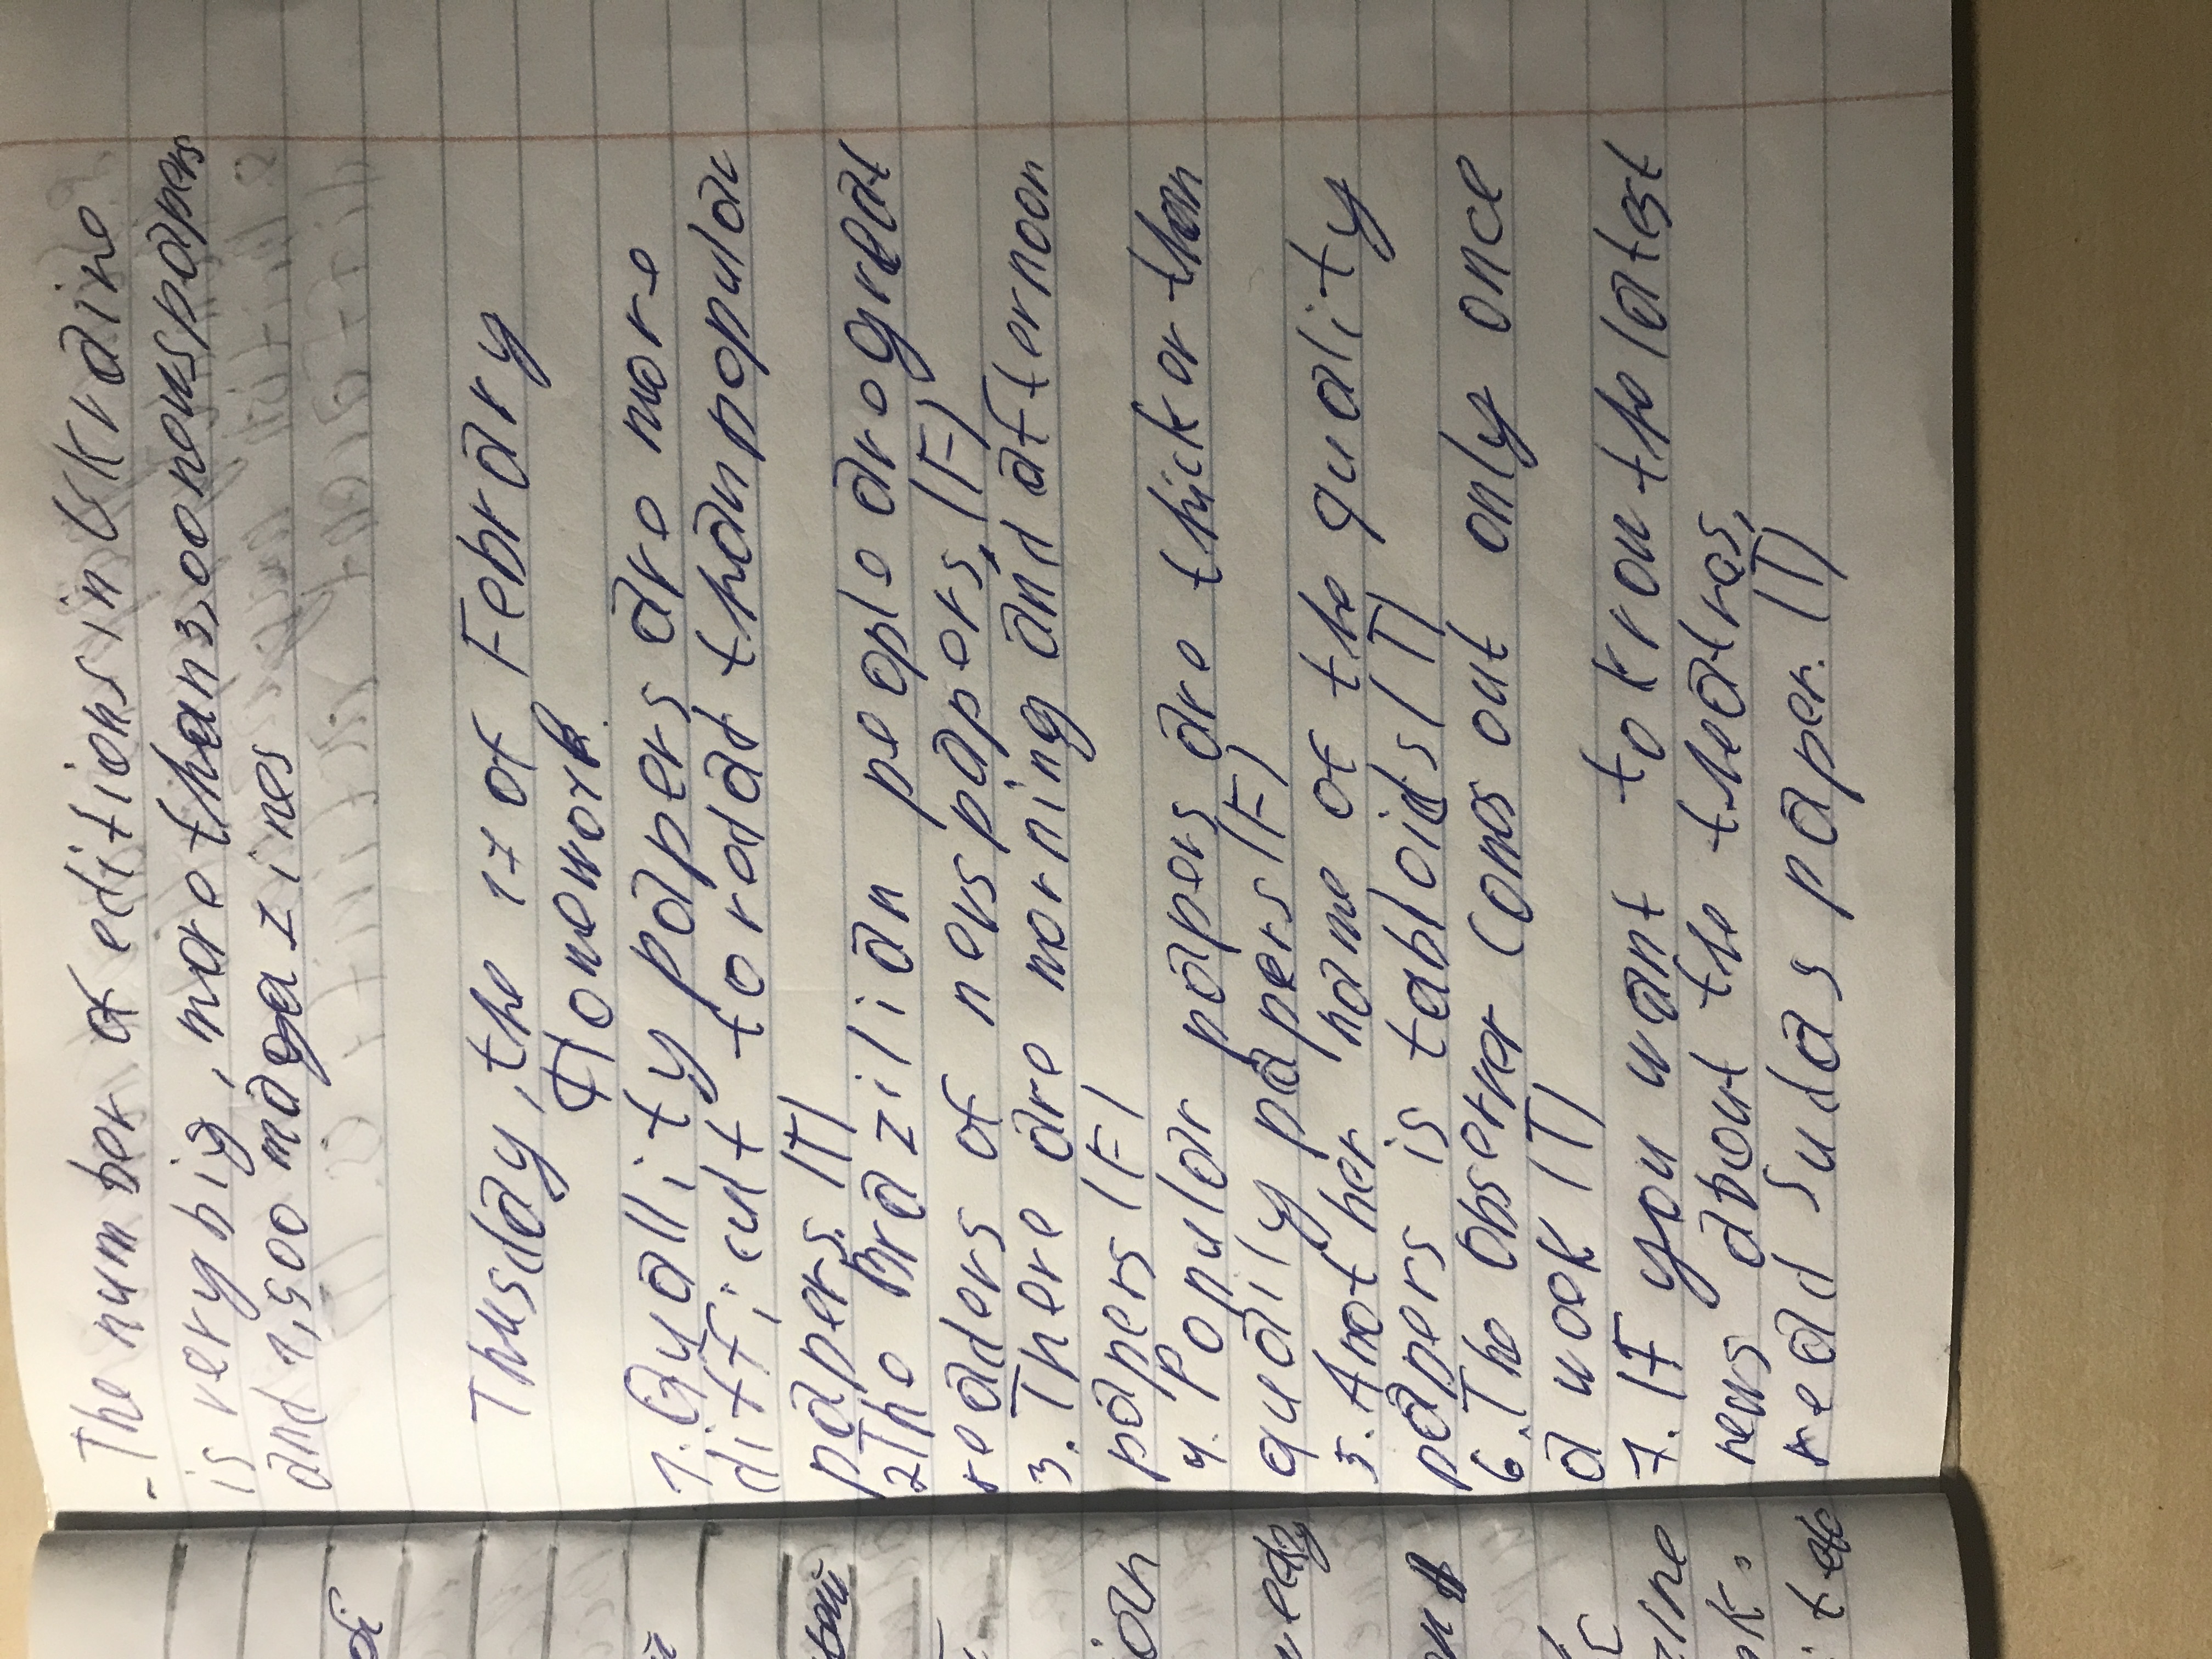 - The number of editions in Ukraine
is very big, more than 3,00 newspapers
and 1,500 magazines
Thusday, the 17 of Febrary
Homework
1. Quallity papers are more
difficult to read than popular
papers. (T)
2 The Brazilian people are great
readers of newspapers, (F)
3. There are morning and afternoon
papers (F)
4. Popular papers are thicker than
quality papers (F)
5. Another name of the quality
papers is tabloids (T)
6. The observer comes out only once
a week (T)
7. If you want to know the latest
news about the theatres,
read sudas paper. (T)